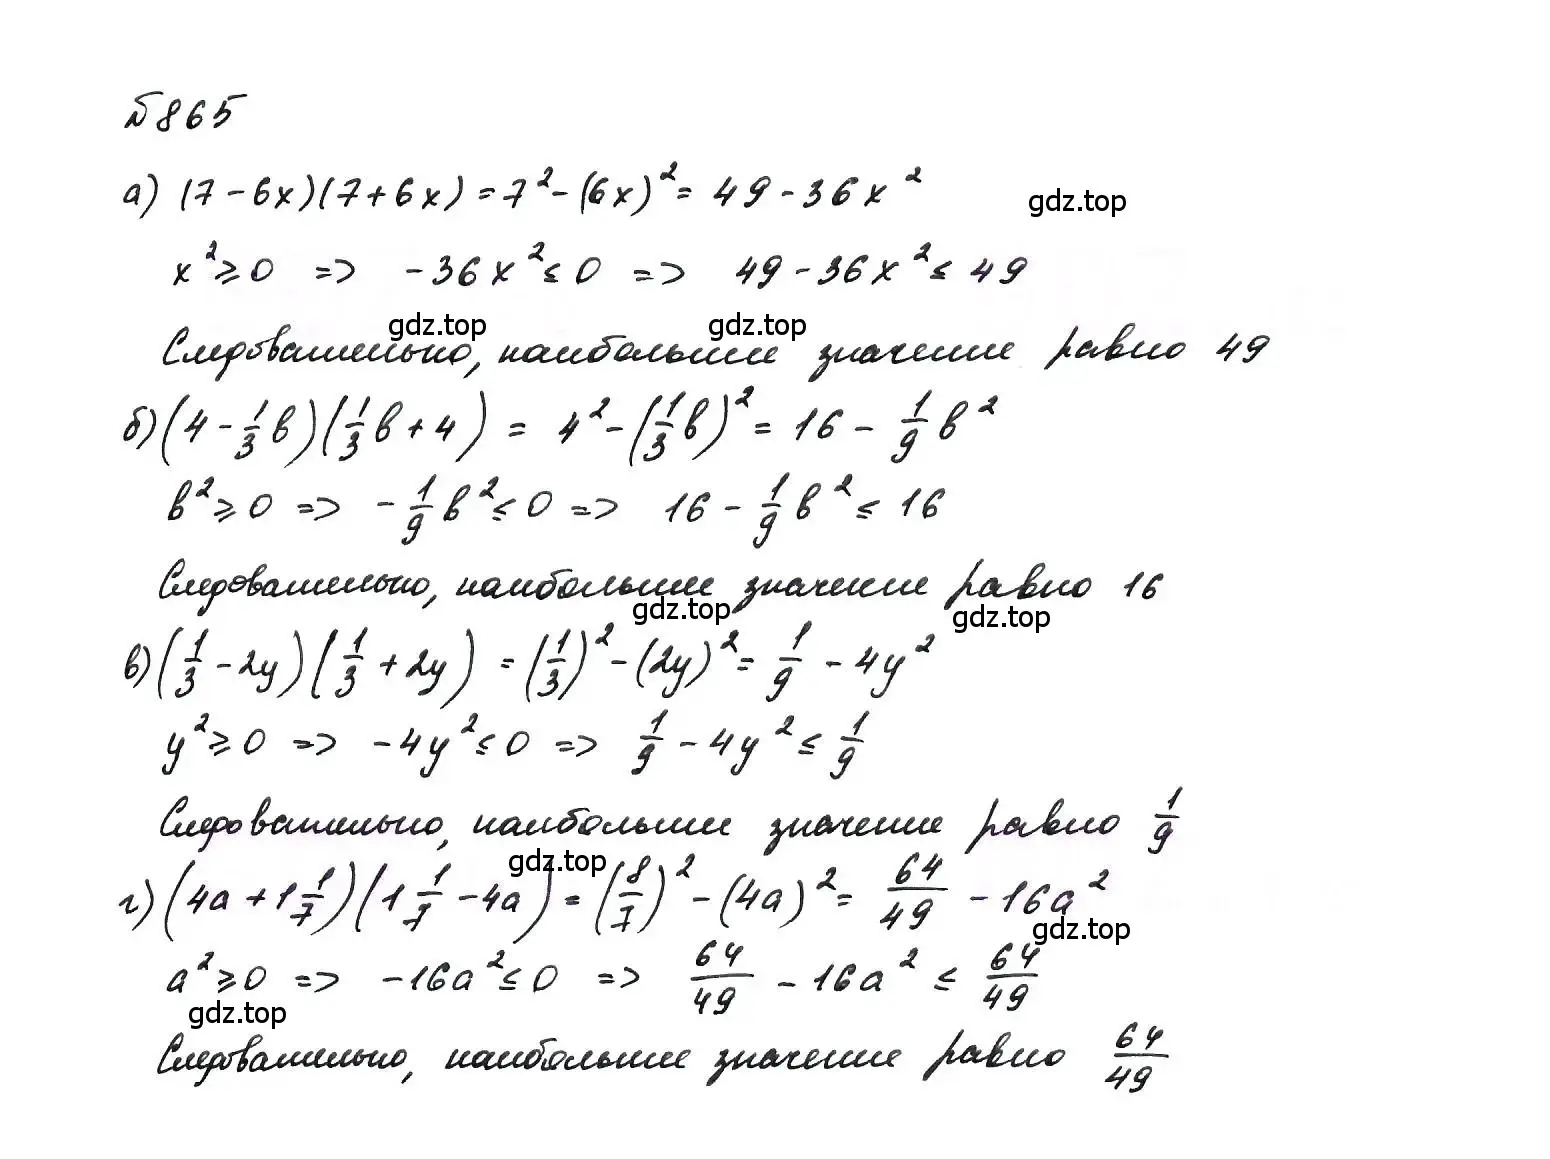 №865
а) (7-6x)(7+6x) = 7² - (6x)² = 49 - 36x²
gdz.top
x² ⩾ 0 => -36x² ≤ 0 => 49 - 36x² ≤ 49
gdz.top gdz.top
Следовательно, наибольшее значение равно 49
б) (4 - 1/3 b)(1/3 b + 4) = 4² - (1/3 b)² = 16 - 1/9 b²
b² ⩾ 0 => -1/9 b² ≤ 0 => 16 - 1/9 b² ≤ 16
Следовательно, наибольшее значение равно 16
gdz.top gdz.top
в) (1/3 - 2y)(1/3 + 2y) = (1/3)² - (2y)² = 1/9 - 4y²
y² ⩾ 0 => -4y² ≤ 0 => 1/9 - 4y² ≤ 1/9
Следовательно, наибольшее значение равно 1/9
gdz.top
г) (4a + 1 1/7)(1 1/7 - 4a) = (8/7)² - (4a)² = 64/49 - 16a²
gdz.top
a² ⩾ 0 => -16a² ≤ 0 => 64/49 - 16a² ≤ 64/49
gdz.top
Следовательно, наибольшее значение равно 64/49